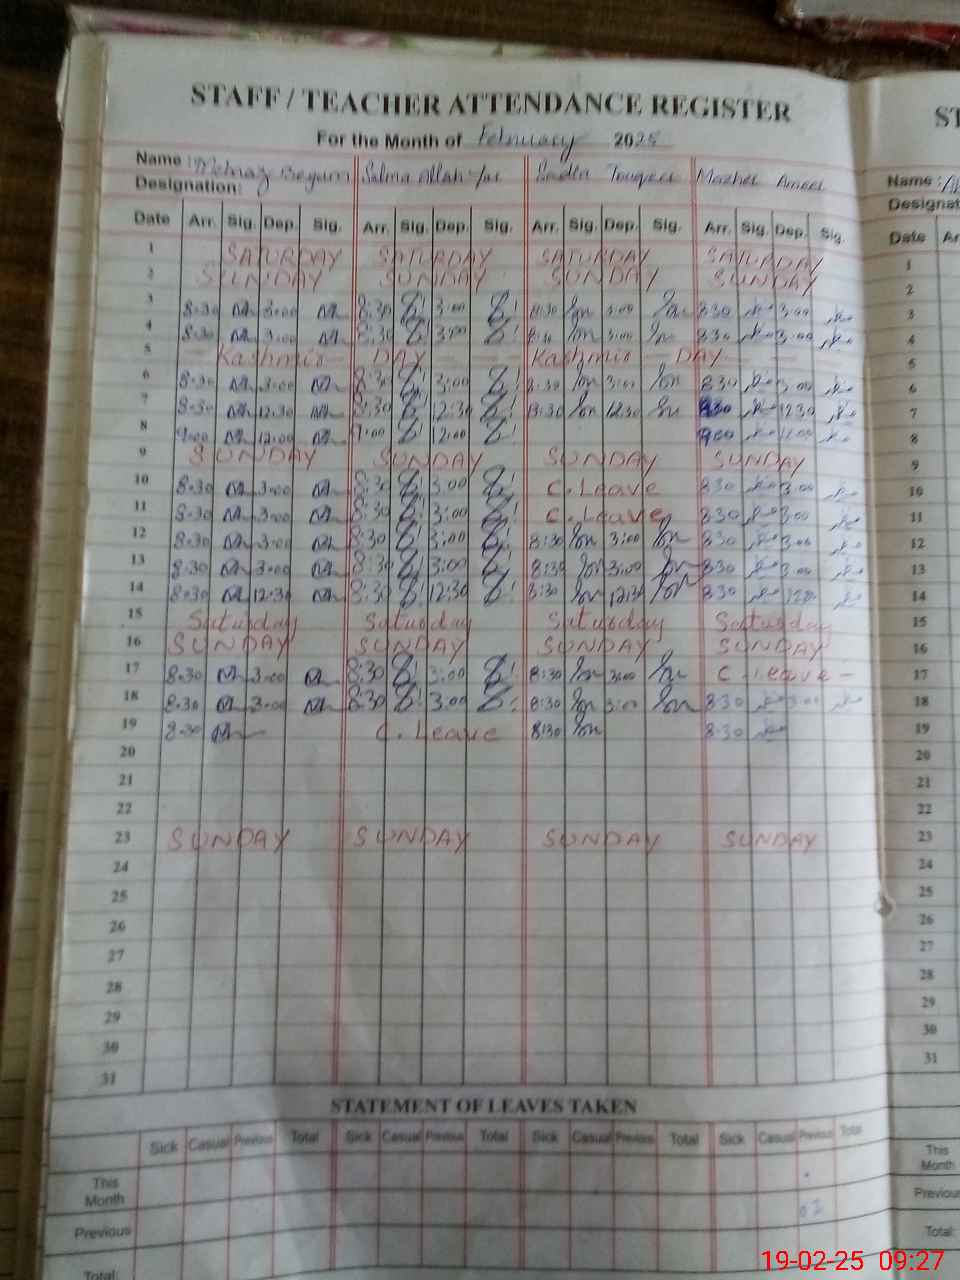 STAFF / TEACHER ATTENDANCE REGISTER
For the Month of February 2025
Name : Mehnaz Begum Salma Allah Sadla Touqeer Mazher Ameer
Designation:
Date Arr. Sig. Dep. Sig. Arr. Sig. Dep. Sig. Arr. Sig. Dep. Sig. Arr. Sig. Dep. Sig.
1 SATURDAY SATURDAY SATURDAY SATURDAY
2 SUNDAY SUNDAY SUNDAY SUNDAY
3 8:30 3:00 8:30 3:00 8:30 3:00 8:30 3:00
4 8:30 3:00 8:30 3:00 8:30 3:00 8:30 3:00
5 Kashmir DAY Kashmir DAY
6 8:30 3:00 8:30 3:00 8:30 3:00 8:30 3:00
7 8:30 12:30 8:30 12:30 8:30 12:30 8:30 12:30
8 9:00 12:00 9:00 12:00 9:00 12:00
9 SUNDAY SUNDAY SUNDAY SUNDAY
10 8:30 3:00 8:30 3:00 C. Leave 8:30 3:00
11 8:30 3:00 8:30 3:00 C. Leave 8:30 3:00
12 8:30 3:00 8:30 3:00 8:30 3:00 8:30 3:00
13 8:30 3:00 8:30 3:00 8:30 3:00 8:30 3:00
14 8:30 12:30 8:30 12:30 8:30 12:30 8:30
15 Saturday Saturday Saturday Saturday
16 SUNDAY SUNDAY SUNDAY SUNDAY
17 8:30 3:00 8:30 3:00 8:30 3:00 C. Leave -
18 8:30 3:00 8:30 3:00 8:30 3:00 8:30 3:00
19 8:30 C. Leave 8:30 8:30
20
21
22
23 SUNDAY SUNDAY SUNDAY SUNDAY
24
25
26
27
28
29
30
31
STATEMENT OF LEAVES TAKEN
Sick Casual Previous Total Sick Casual Previous Total Sick Casual Previous Total Sick Casual Previous Total
This Month
Previous 02
Total:
ST
Name :
Designat
Date Ar
1
2
3
4
5
6
7
8
9
10
11
12
13
14
15
16
17
18
19
20
21
22
23
24
25
26
27
28
29
30
31
This Month
Previous
Total:
19-02-25 09:27